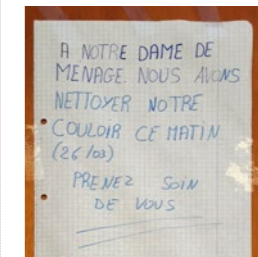 A NOTRE DAME DE
MENAGE. NOUS AVONS
NETTOYER NOTRE
COULOIR CE MATIN
(26/03)
PRENEZ SOIN
DE VOUS